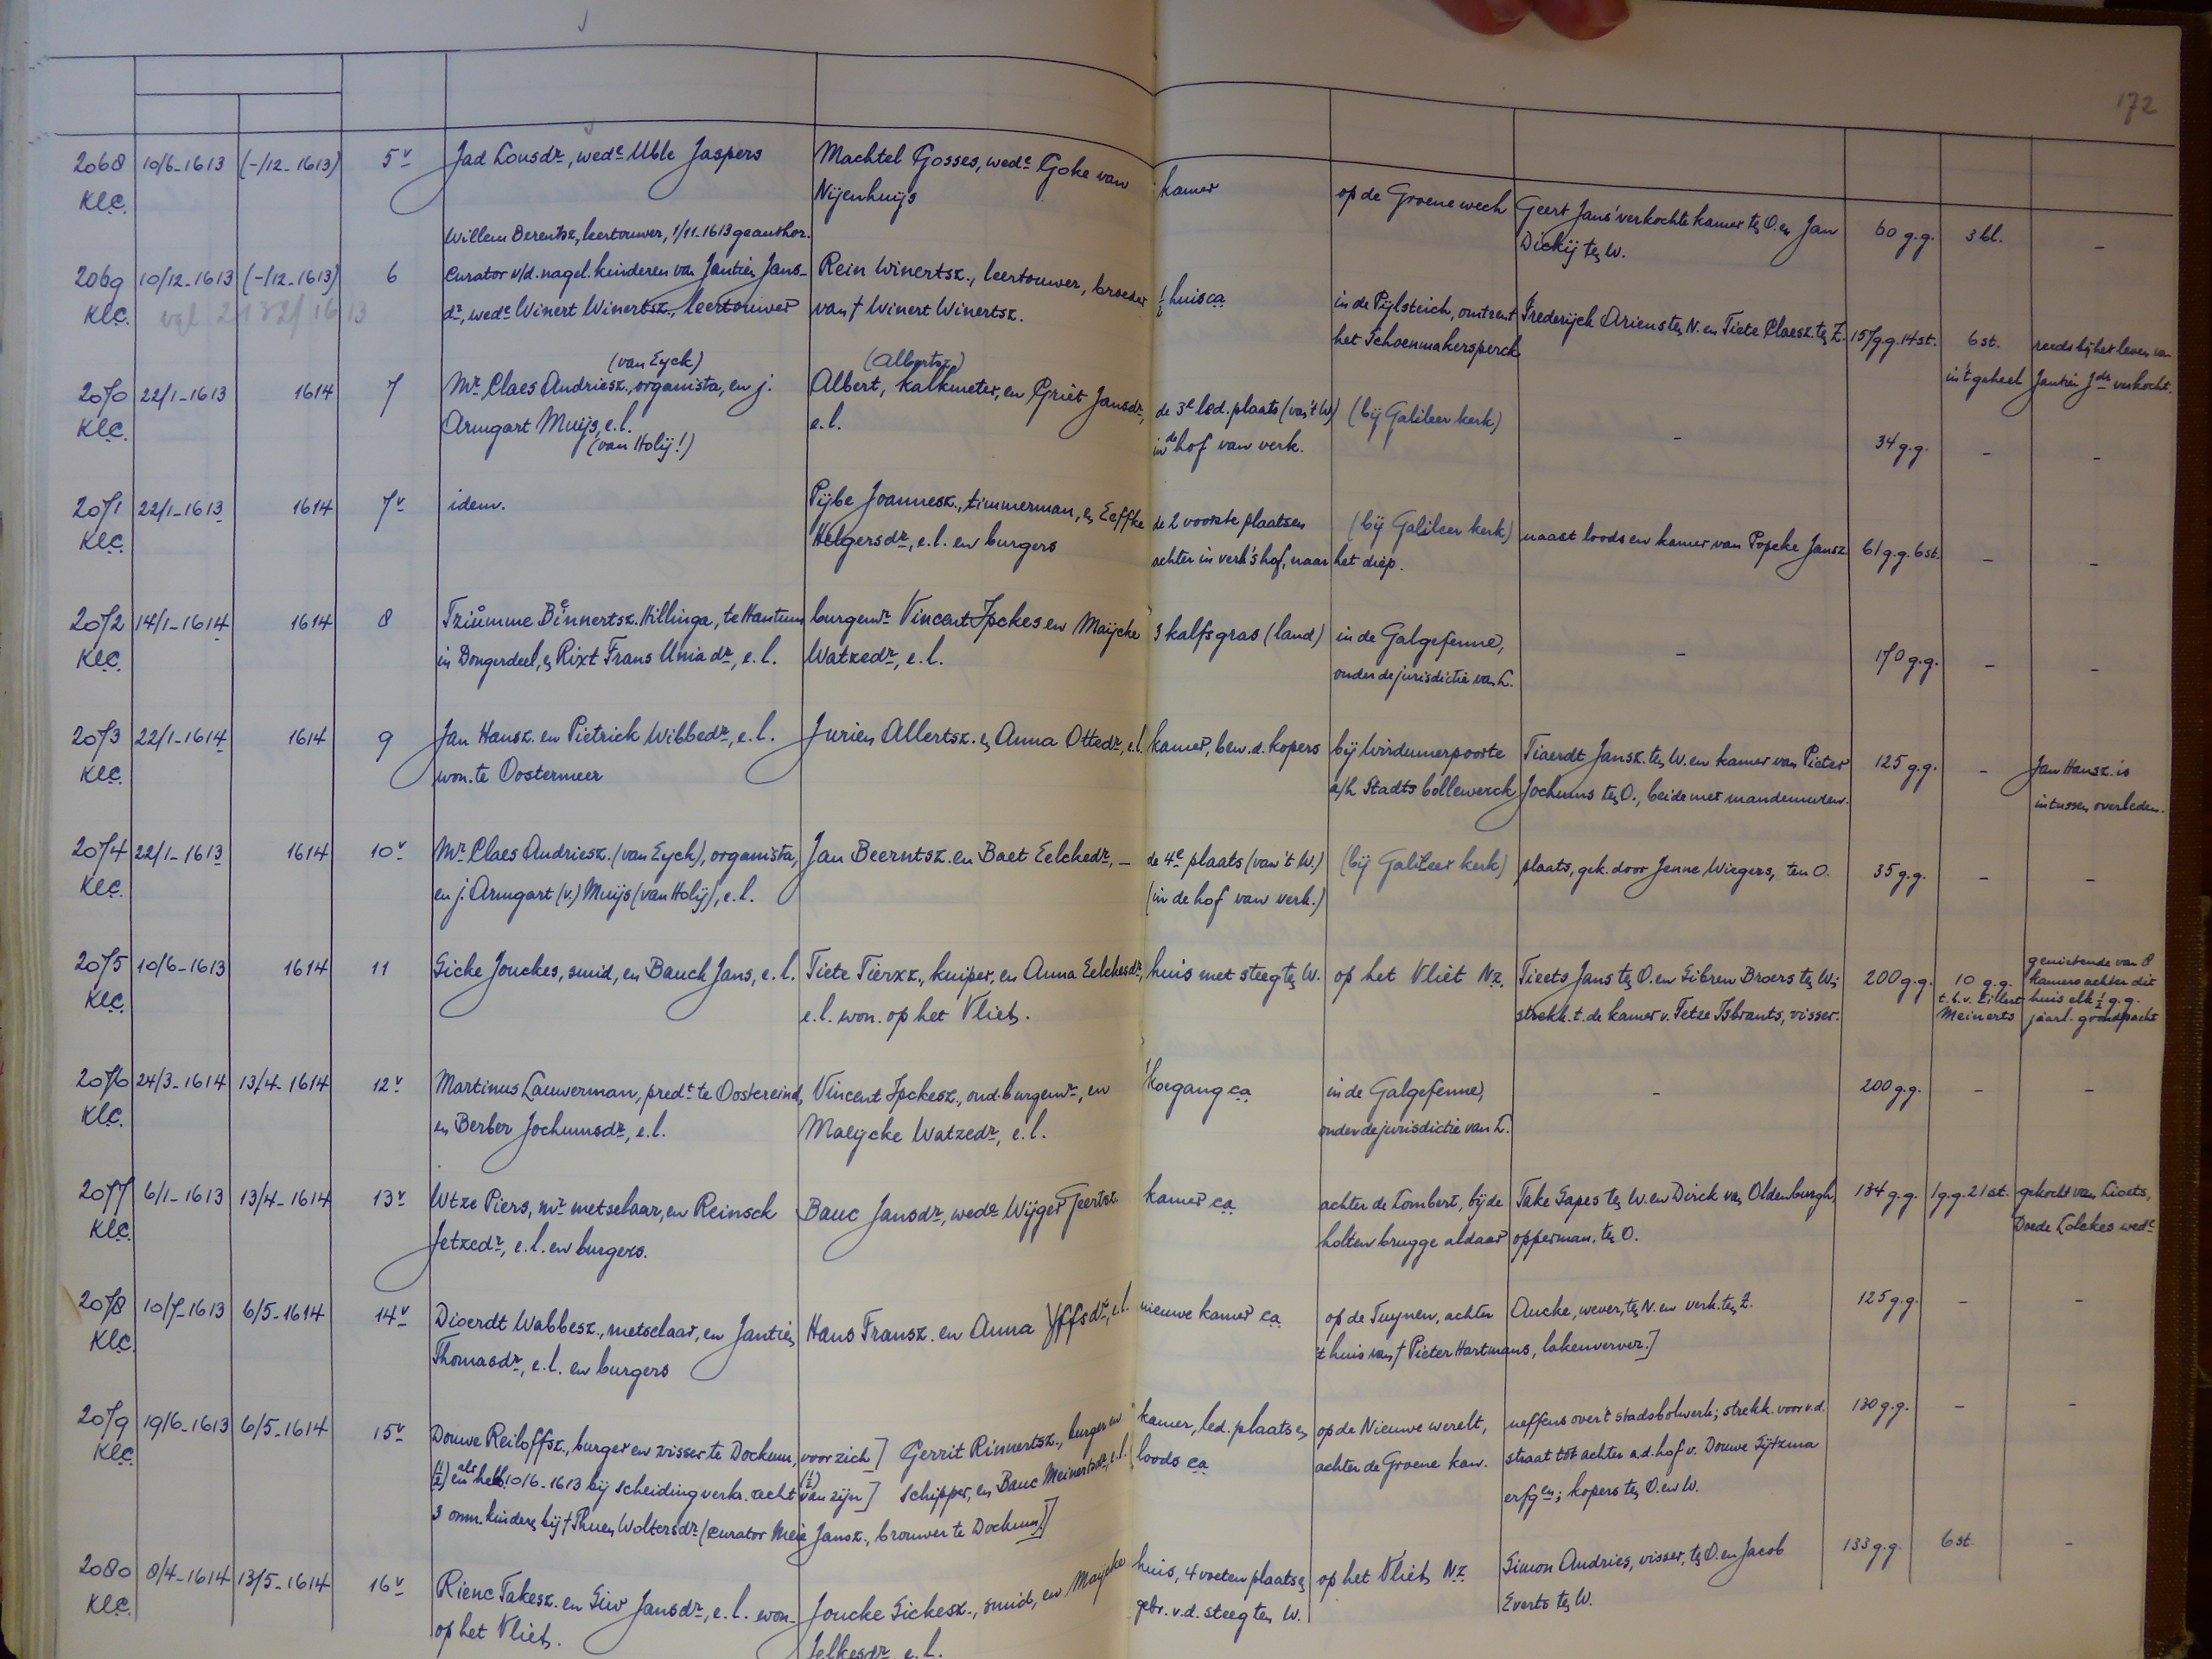 172
2068 10/6-1613 (-/12-1613) 5v Jad Lousdr, wede Uble Jaspers Machtel Gosses, wede Goke van kamer op de Groene wech Geert Jans' verkochte kamer ten O. en Jan 60 g.g. 3 bl. -
KLC. Nijenhuijs Dickij ten W.
Willem Berentsz, leertouwer, 1/11-1613 geauthor.
2069 10/12-1613 (-/12-1613) 6 curator v/d. nagel. kinderen van Jantien Jans- Rein Winertsz., leertouwer, broeder ½ huis ca in de Pijlsteich, omtrent Frederijck Ariens ten N. en Tiete Claesz. ten Z. 157 g.g. 14 st. 6 st. reeds bij het leven van
KLC. vgl 2132/1613 dr, wede Winert Winertsz., leertouwer van † Winert Winertsz. het Schoenmakersperck in 't geheel Jantien Jdr verkocht.
(van Eyck) (Albertsz)
2070 22/1-1613 1614 7 Mr Claes Andriesz., organista, en j. Albert, kalkmeter, en Griet Jansdr, de 3e led. plaats (van 't W) (bij Galileer kerk) - 34 g.g. - -
KLC. Armgart Muijs, e.l. e.l. in de hof van verk.
(van Holij!)
2071 22/1-1613 1614 7v idem. Pijbe Joannesz., timmerman, en Eeffke de 2 voorste plaatsen (bij Galileer kerk) naast loods en kamer van Popcke Jansz. 61 g.g. 6 st. - -
KLC. Helgersdr, e.l. en burgers achter in verk's hof, naar het diep.
2072 14/1-1614 1614 8 Tziümme Binnertsz. Hillinga, te Hantum burgemr Vincent Ipckes en Maijcke 3 kalfsgras (land) in de Galgefenne, - 170 g.g. - -
KLC. in Dongerdeel, en Rixt Frans Unia dr, e.l. Watzedr, e.l. onder de jurisdictie van L.
2073 22/1-1614 1614 9 Jan Hansz. en Pietrick Wibbedr, e.l. Jurien Allertsz. en Anna Ottedr, e.l. kamer, bew. d. kopers bij Wirdumerpoorte Tiaerdt Jansz. ten W. en kamer van Pieter 125 g.g. - Jan Hansz. is
KLC. won. te Oostermeer a/h Stadts bollewerck Jochums ten O., beide met mandemuren. intussen overleden.
2074 22/1-1613 1614 10v Mr Claes Andriesz. (van Eyck), organista, Jan Beerntsz. en Baet Eelckedr, - de 4e plaats (van 't W.) (bij Galileer kerk) plaats, gek. door Jenne Wiegers, ten O. 35 g.g. - -
KLC. en j. Armgart (v.) Muijs (van Holij), e.l. (in de hof van verk.)
2075 10/6-1613 1614 11 Sicke Jouckes, smid, en Bauck Jans, e.l. Tiete Tierxz., kuiper, en Anna Eelckesdr, huis met steeg ten W. op het Vliet Nz. Tieets Jans ten O. en Sibren Broers ten W; 200 g.g. 10 g.g. genietende van 8 kamers achter dit
KLC. e.l. won. op het Vliet. strekk. t. de kamer v. Tetze Isbrants, visser. t.b.v. Eillert Meinerts huis elk ½ g.g. jaarl. grondpacht
2076 24/3-1614 13/4-1614 12v Martinus Lauwerman, predt te Oostereind, Vincent Ipckesz., oud-burgemr, en 1 koegang ca in de Galgefenne, - 200 g.g. - -
KLC. en Berber Jochumsdr, e.l. Maeycke Watzedr, e.l. onder de jurisdictie van L.
2077 6/1-1613 13/4-1614 13v Wtze Piers, mr metselaar, en Reinsck Bauc Jansdr, wede Wijger Geertsz. kamer ca achter de Lombert, bij de Take Sapes ten W. en Dirck van Oldenburgh, 134 g.g. 1 g.g. 21 st. gekocht van Lioets,
KLC. Jetzedr, e.l. en burgers. holten brugge aldaar opperman, ten O. Doede Lolckes wede
2078 10/7-1613 6/5-1614 14v Dioerdt Wabbesz., metselaar, en Jantien Hans Fransz. en Anna Yffsdr, e.l. nieuwe kamer ca op de Tuynen, achter Aucke, wever, ten N. en verk. ten Z. 125 g.g. - -
KLC. Thomasdr, e.l. en burgers 't huis van † Pieter Hartmans, lakenverver.]
2079 19/6-1613 6/5-1614 15v Douwe Reiloffsz., burger en visser te Dockum, voor zich] Gerrit Rinnertsz., burger en kamer, led. plaats en op de Nieuwe werelt, neffens over 't stadsbolwerk; strekk. voor v.d. 130 g.g. - -
KLC. (½) en als hebb. 10/6-1613 bij scheiding verkr. recht (½) van zijn] schipper, en Bauc Meinertsdr, e.l. loods ca achter de Groene kan. straat tot achter a.d. hof v. Douwe Sijtzma
3 onm. kinderen bij † Thuen Woltersdr (curator Meie Jansz., brouwer te Dockum)] erfgen; kopers ten O. en W.
2080 8/4-1614 13/5-1614 16v Rienc Takesz. en Siw Jansdr, e.l. won. Joucke Sickesz., smid, en Maijcke huis, 4 voeten plaats en op het Vliet Nz Simon Andries, visser, ten O. en Jacob 133 g.g. 6 st. -
KLC. op het Vliet. Jelkesdr e.l. gebr. v.d. steeg ten W. Everts ten W.